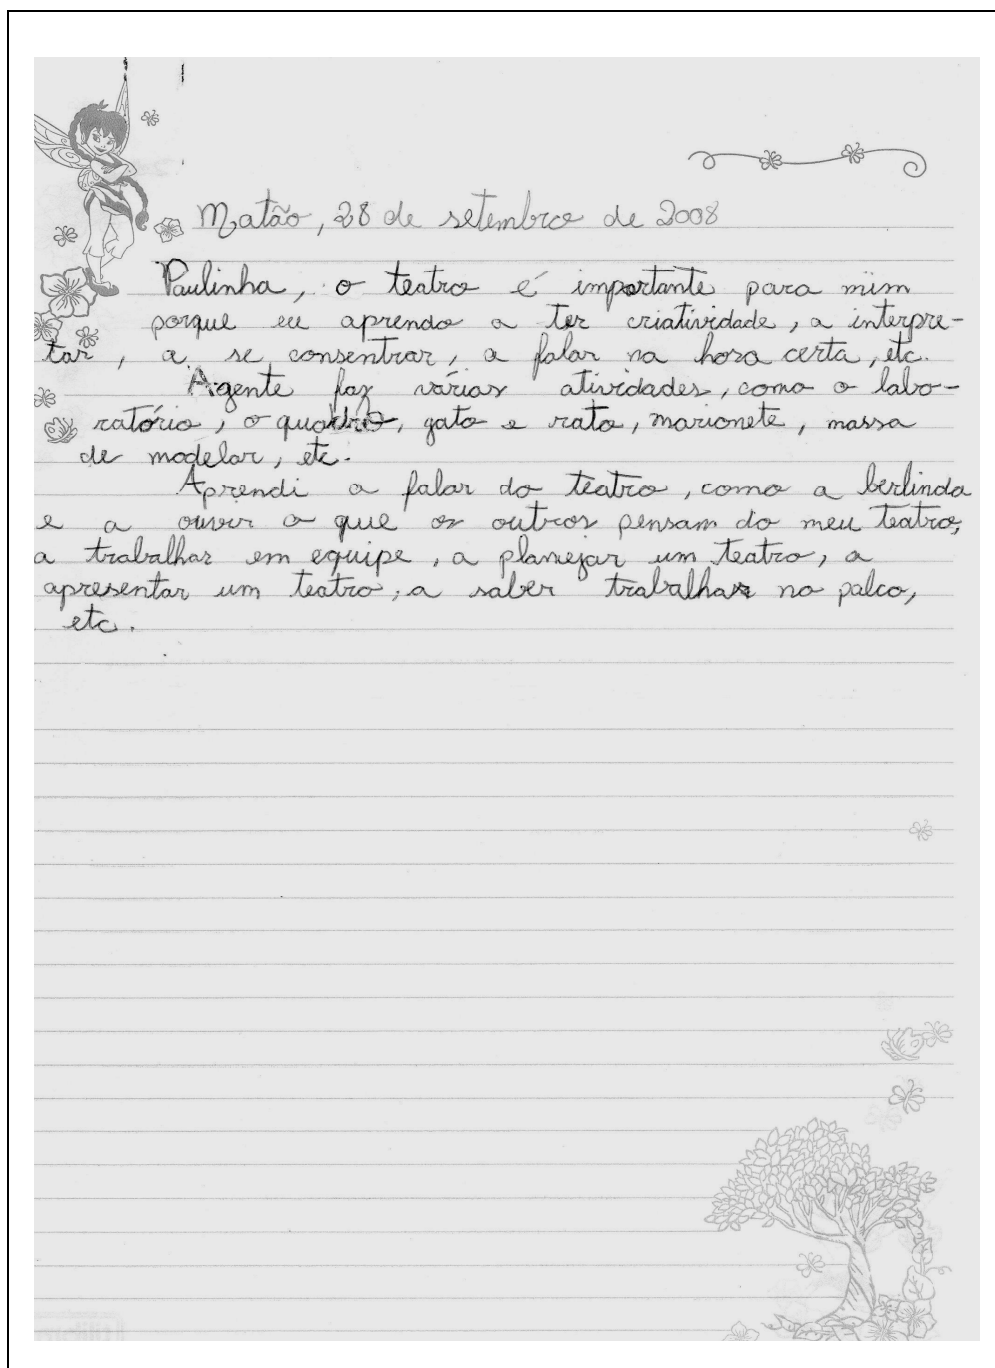 Matão, 28 de setembro de 2008
Paulinha, o teatro é importante para mim
porque eu aprendo a ter criatividade, a interpre-
tar, a se consentrar, a falar na hora certa, etc.
Agente faz várias atividades, como o labo-
ratório, o quadro, gato e rato, marionete, massa
de modelar, etc.
Aprendi a falar do teatro, como a berlinda
e a ouvir o que os outros pensam do meu teatro,
a trabalhar em equipe, a planejar um teatro, a
apresentar um teatro, a saber trabalhar no palco,
etc.